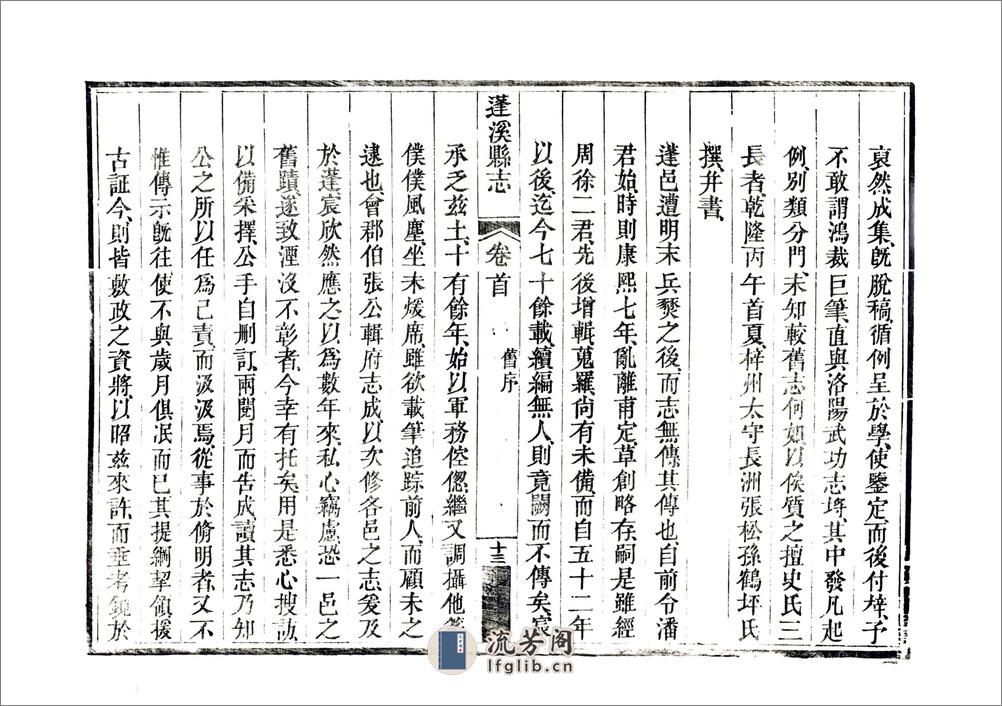 裒然成集既脫稿循例呈於學使鑒定而後付梓予
不敢謂鴻裁巨筆直與洛陽武功志埓其中發凡起
例別類分門未知較舊志何如以俟質之擅史氏三
長者乾隆丙午首夏梓州太守長洲張松孫鶴坪氏
撰并書
蓬邑遭明末兵燹之後而志無傳其傳也自前令潘
君始時則康熙七年亂離甫定草創略存嗣是雖經
周徐二君先後增輯蒐羅尚有未備而自五十二年
以後迄今七十餘載續編無人則竟闕而不傳矣宸
蓬溪縣志
卷首
舊序
十三
承乏兹土十有餘年始以軍務倥傯繼又調攝他
僕僕風塵坐未煖席雖欲載筆追踪前人而顧未之
逮也會郡伯張公輯府志成以次修各邑之志爰及
於蓬宸欣然應之以爲數年來私心竊慮恐一邑之
舊蹟遂致湮沒不彰者今幸有托矣用是悉心搜訪
以備采擇公手自刪訂兩閱月而告成讀其志乃知
公之所以任爲己責而汲汲焉從事於脩明者又不
惟傳示旣往使不與歲月俱泯而已其提綱挈領援
古証今則皆敷政之資將以昭兹來許而垂考鏡於
流芳阁
lfglib.cn